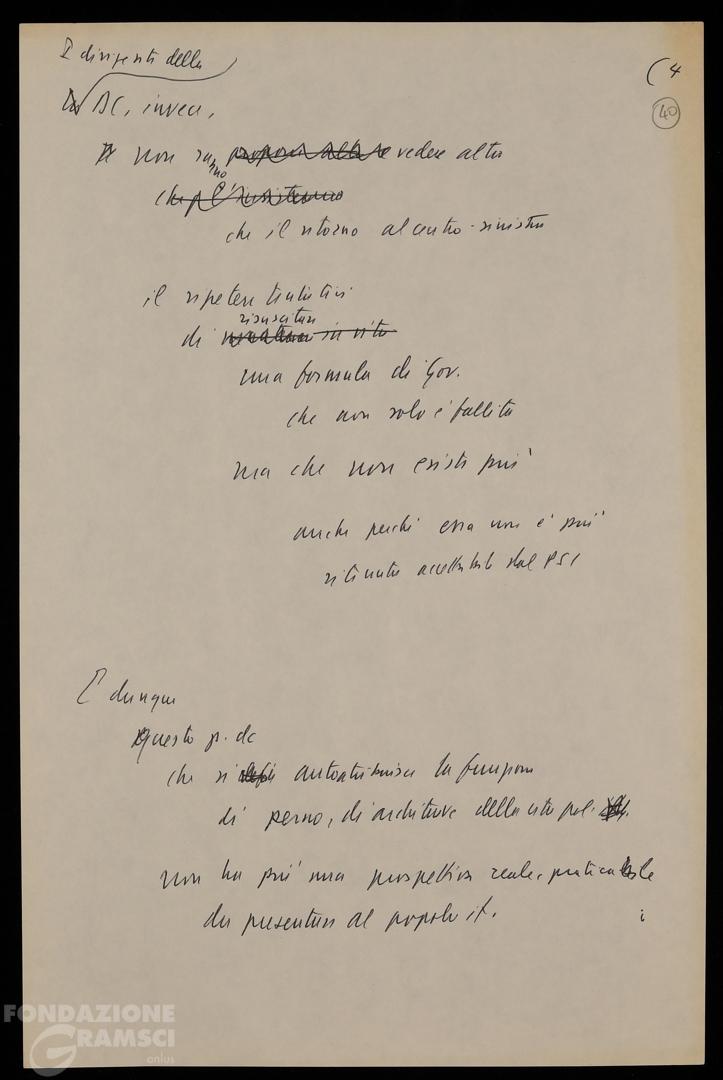 I dirigenti della
(4
40
La DC, invece,
non sanno proporre altro e vedere altro
che
che il ritorno al centro-sinistra
il ripetere tentativi
risuscitare
di in vita
una formula di Gov.
che non solo è fallita
ma che non esiste più
anche perché essa non è più
ritenuta accettabile dal PSI
E dunque
Questo p. dc
che si autoattribuisce la funzione
di perno, di architrave della vita pol.
non ha più una prospettiva reale, praticabile
da presentare al popolo it.
FONDAZIONE
GRAMSCI
onlus